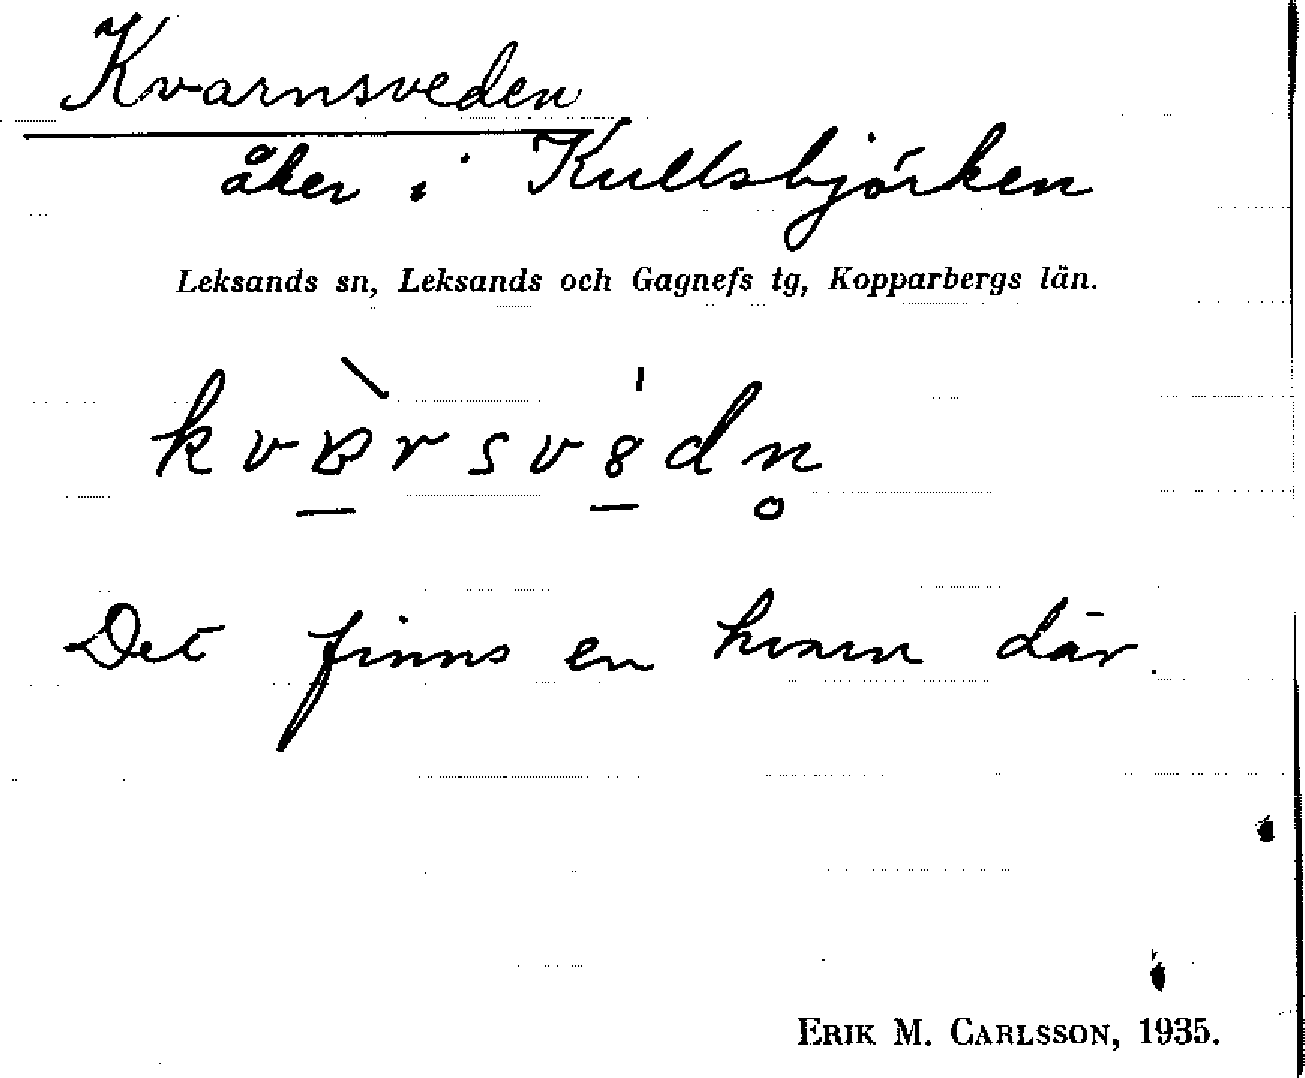 Kvarnsveden
åker i Kullsbjörken
Leksands sn, Leksands och Gagnefs tg, Kopparbergs län.
Det finns en kvarn där.
ERIK M. CARLSSON, 1935.